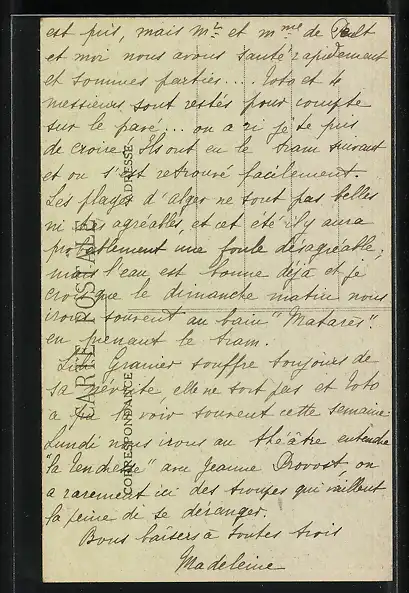 est pris, mais Mr et Mme de
et moi nous avons sauté rapidement
et sommes parties... Toto et le
messieurs sont restés pour compte
sur le pavé... on a ri je te prie
de croire. Ils ont eu le tram suivant
et on s'est retrouvé facilement.
Les plages d'alger ne sont pas belles
ni agréables, et cet été il y aura
probablement une foule désagréable,
mais l'eau est bonne déjà et je
crois que le dimanche matin nous
irons souvent au bain "Matarès".
en prenant le tram.
Lili Granier souffre toujours de
sa elle ne sort pas et Toto
a la voir souvent cette semaine.
Lundi nous irons au théâtre entendre
"la Tendresse" avec Jeanne Provost, on
a rarement ici des troupes qui vaillent
la peine de se déranger.
Bons baisers à toutes trois
Madeleine
CARTE POSTALE
CORRESPONDANCE
ADRESSE